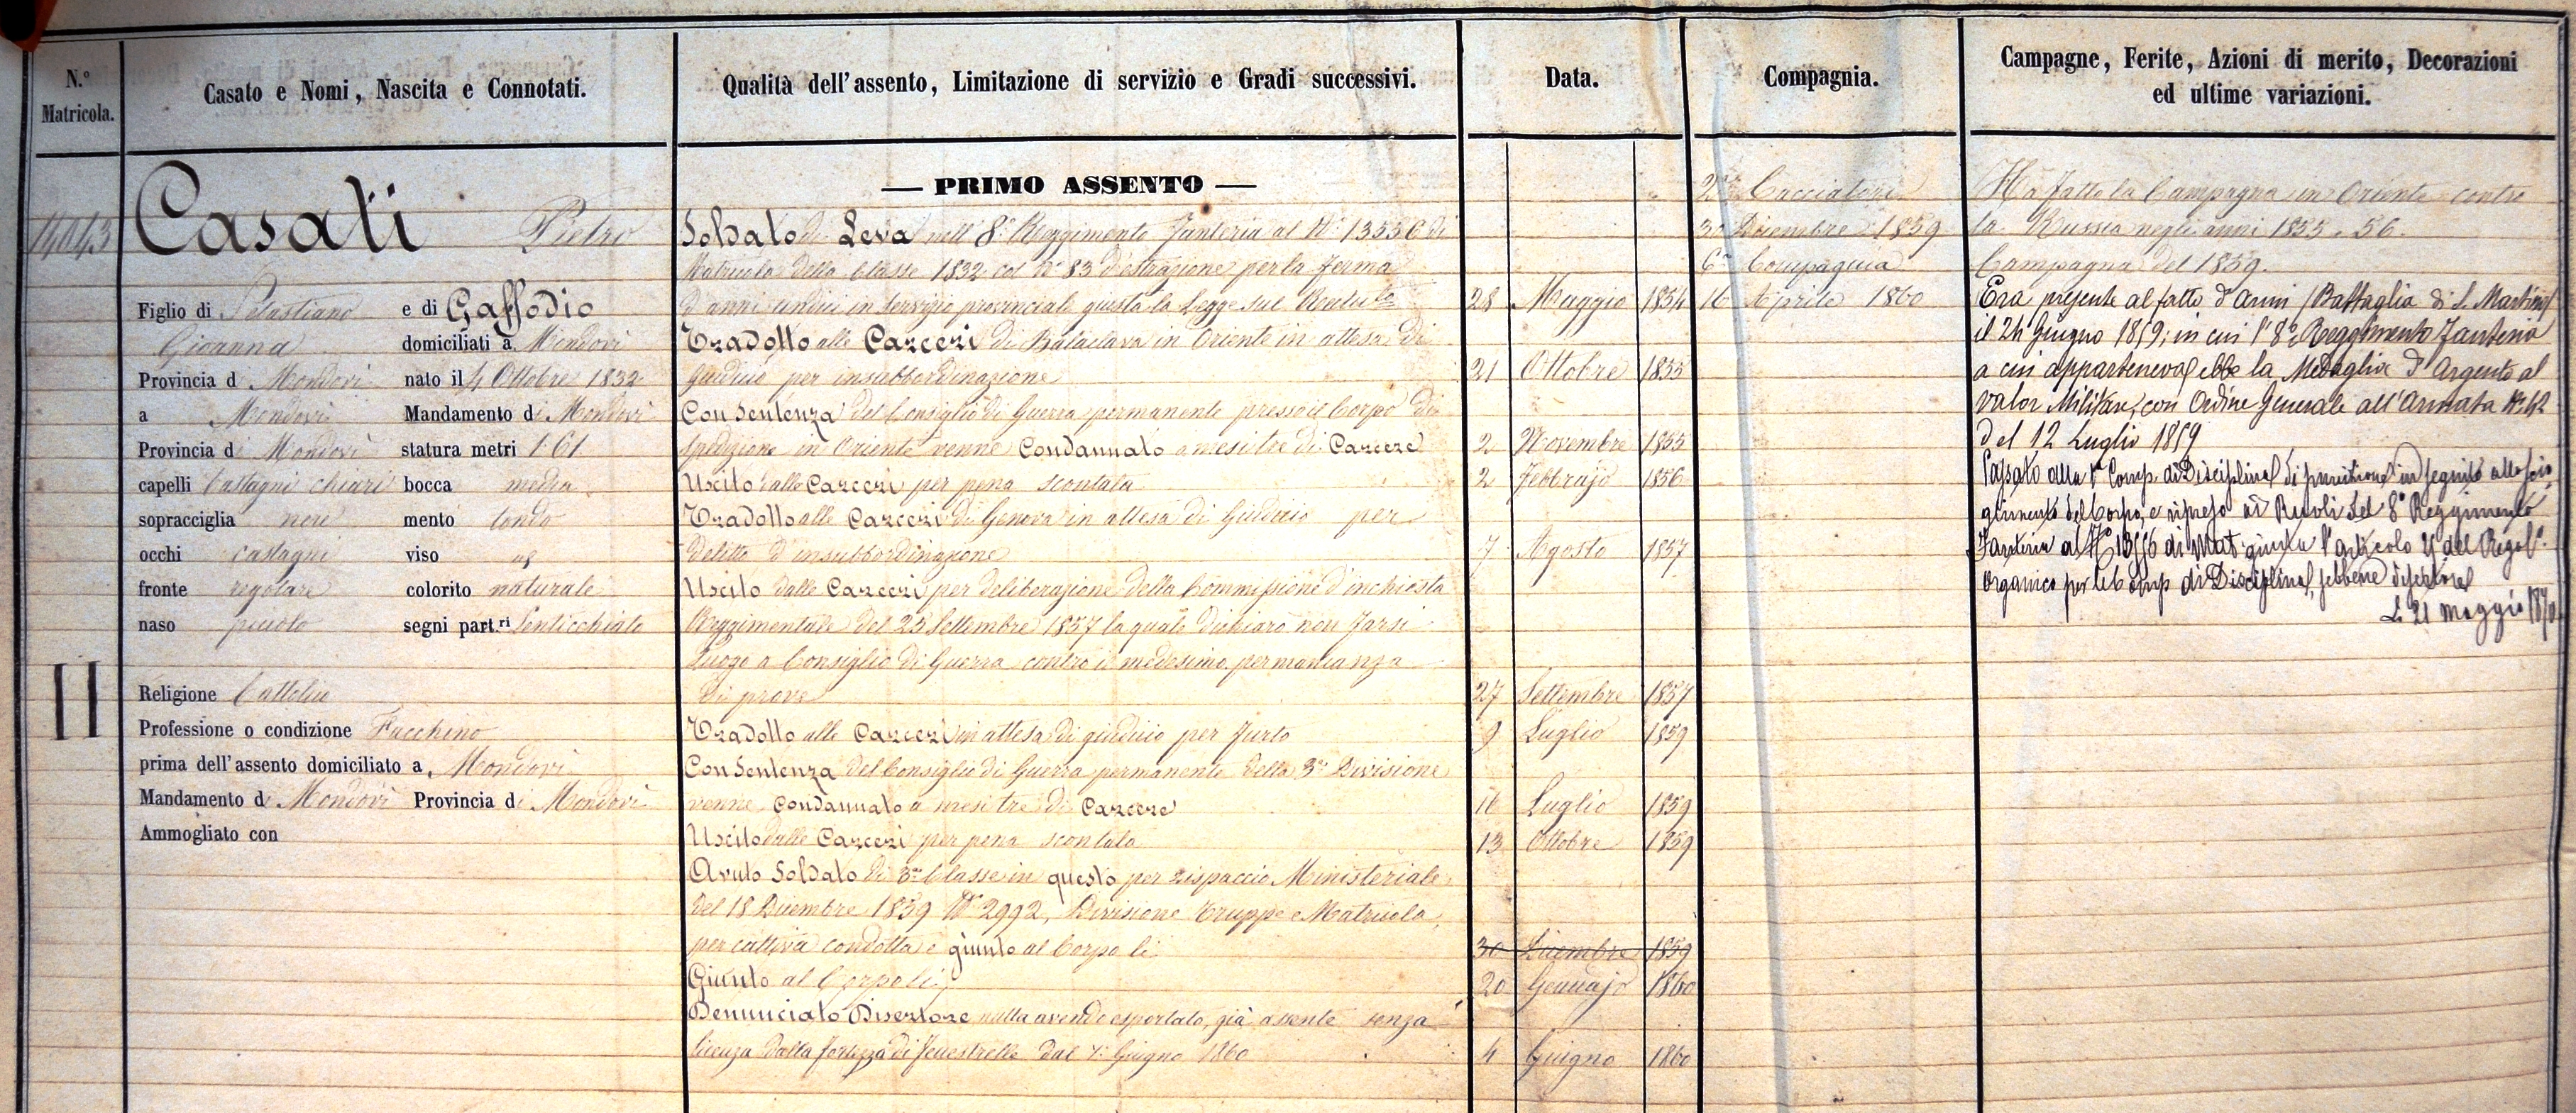 N.° Matricola.
Casato e Nomi, Nascita e Connotati.
Qualità dell'assento, Limitazione di servizio e Gradi successivi.
Data.
Compagnia.
Campagne, Ferite, Azioni di merito, Decorazioni
ed ultime variazioni.
14043
Casati Pietro
Figlio di Sebastiano e di Gaffodio
Giovanna domiciliati a Mondovì
Provincia d Mondovì nato il 4 Ottobre 1832
a Mondovì Mandamento di Mondovì
Provincia di Mondovì statura metri 1.61
capelli Castagni chiari bocca media
sopracciglia nere mento tondo
occhi castagni viso
fronte regolare colorito naturale
naso piccolo segni part.ri Lenticchiato
II
Religione Cattolica
Professione o condizione Facchino
prima dell'assento domiciliato a Mondovì
Mandamento di Mondovì Provincia di Mondovì
Ammogliato con
— PRIMO ASSENTO —
Soldato di Leva nell' 8° Reggimento Fanteria al N° 13556 di
Matricola della Classe 1832 col N° 83 d'estrazione per la ferma
d'anni undici in servizio provinciale giusta la Legge sul Reclut.to 28 Maggio 1854
Tradotto alle Carceri di Balaclava in Oriente in attesa di
giudicio per insubbordinazione 21 Ottobre 1855
Con Sentenza del Consiglio di Guerra permanente presso il Corpo di
spedizione in Oriente venne Condannato a mesi tre di Carcere 2 Novembre 1855
Uscito dalle Carceri per pena scontata 2 Febbrajo 1856
Tradotto alle Carceri di Genova in attesa di Giudicio per
delitto d'insubbordinazione 7 Agosto 1857
Uscito dalle Carceri per deliberazione della Commissione d'inchiesta
Reggimentale del 25 Settembre 1857 la quale dichiarò non farsi
luogo a Consiglio di Guerra contro il medesimo per mancanza
di prove 27 Settembre 1857
Tradotto alle Carceri in attesa di giudicio per furto 9 Luglio 1859
Con Sentenza del Consiglio di Guerra permanente della 3a Divisione
venne Condannato a mesi tre di Carcere 16 Luglio 1859
Uscito dalle Carceri per pena scontata 13 Ottobre 1859
Avuto Soldato di 3a Classe in questo per Dispaccio Ministeriale
del 18 Dicembre 1859 N° 2992, Divisione Truppe e Matricola,
per cattiva condotta e giunto al Corpo li 30 Dicembre 1859
Giunto al Corpo li 20 Gennajo 1860
Denunciato Disertore nulla avendo esportato, già assente senza
licenza dalla fortezza di Fenestrelle dal 1° Giugno 1860 4 Giugno 1860
2a Cacciatori
30 Dicembre 1859
6a Compagnia
16 Aprile 1860
Ha fatto la Campagna in Oriente contro
la Russia negli anni 1855. 56.
Campagna del 1859.
Era presente al fatto d'armi (Battaglia di S. Martino)
il 24 Giugno 1859; in cui l'8° Reggimento Fanteria
a cui apparteneva ebbe la Medaglia d'Argento al
valor Militare, con Ordine Generale all'Armata N° 42
del 12 Luglio 1859
Passato alla 1a Comp. di Disciplina di punizione in seguito allo scio-
glimento del Corpo, e ripreso ai Ruoli del 8° Reggimento
Fanteria al N° 13556 di Mat. giusta l'articolo del Regol.o
Organico per le Comp di Disciplina, sebbene disertore
Li 21 Maggio